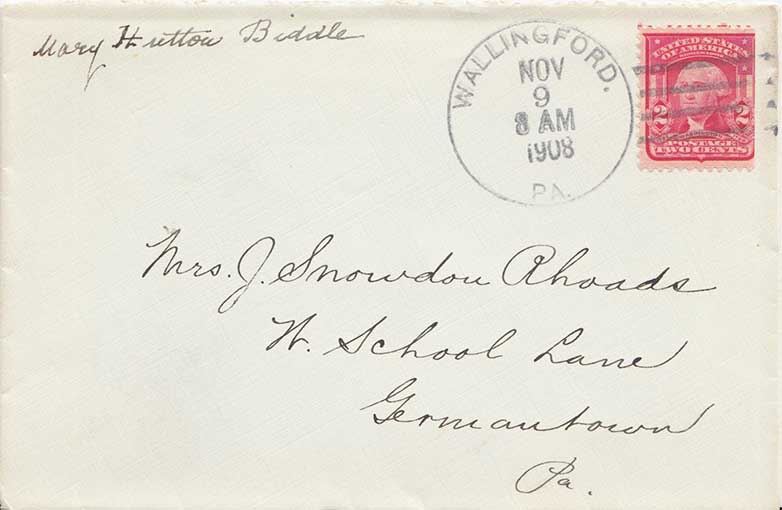 Mary Hutton Biddle
WALLINGFORD.
NOV
9
8 AM
1908
PA.
UNITED STATES
OF AMERICA
2 2
POSTAGE
TWO CENTS
Mrs. J. Snowdon Rhoads
W. School Lane
Germantown
Pa.